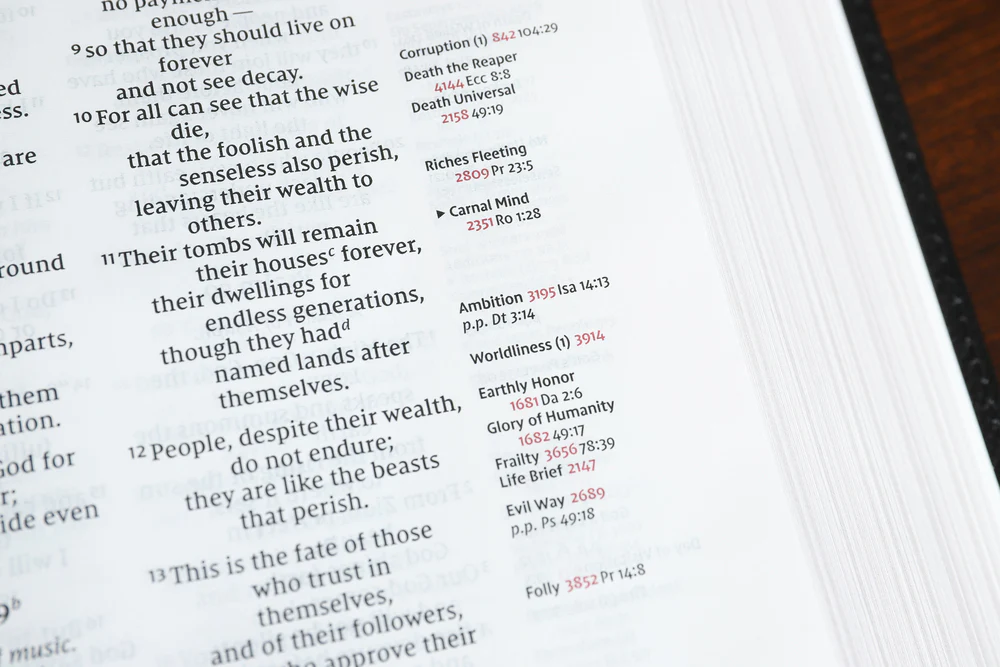 ed
ess.
are
round
mparts,
them
ation.
God for
r;
ide even
9b
music.
no payment
enough —
9 so that they should live on
forever
and not see decay.
10 For all can see that the wise
die,
that the foolish and the
senseless also perish,
leaving their wealth to
others.
11 Their tombs will remain
their housesc forever,
their dwellings for
endless generations,
though they hadd
named lands after
themselves.
12 People, despite their wealth,
do not endure;
they are like the beasts
that perish.
13 This is the fate of those
who trust in
themselves,
and of their followers,
who approve their
Corruption (1) 842 104:29
Death the Reaper
4144 Ecc 8:8
Death Universal
2158 49:19
Riches Fleeting
2809 Pr 23:5
▶ Carnal Mind
2351 Ro 1:28
Ambition 3195 Isa 14:13
p.p. Dt 3:14
Worldliness (1) 3914
Earthly Honor
1681 Da 2:6
Glory of Humanity
1682 49:17
Frailty 3656 78:39
Life Brief 2147
Evil Way 2689
p.p. Ps 49:18
Folly 3852 Pr 14:8